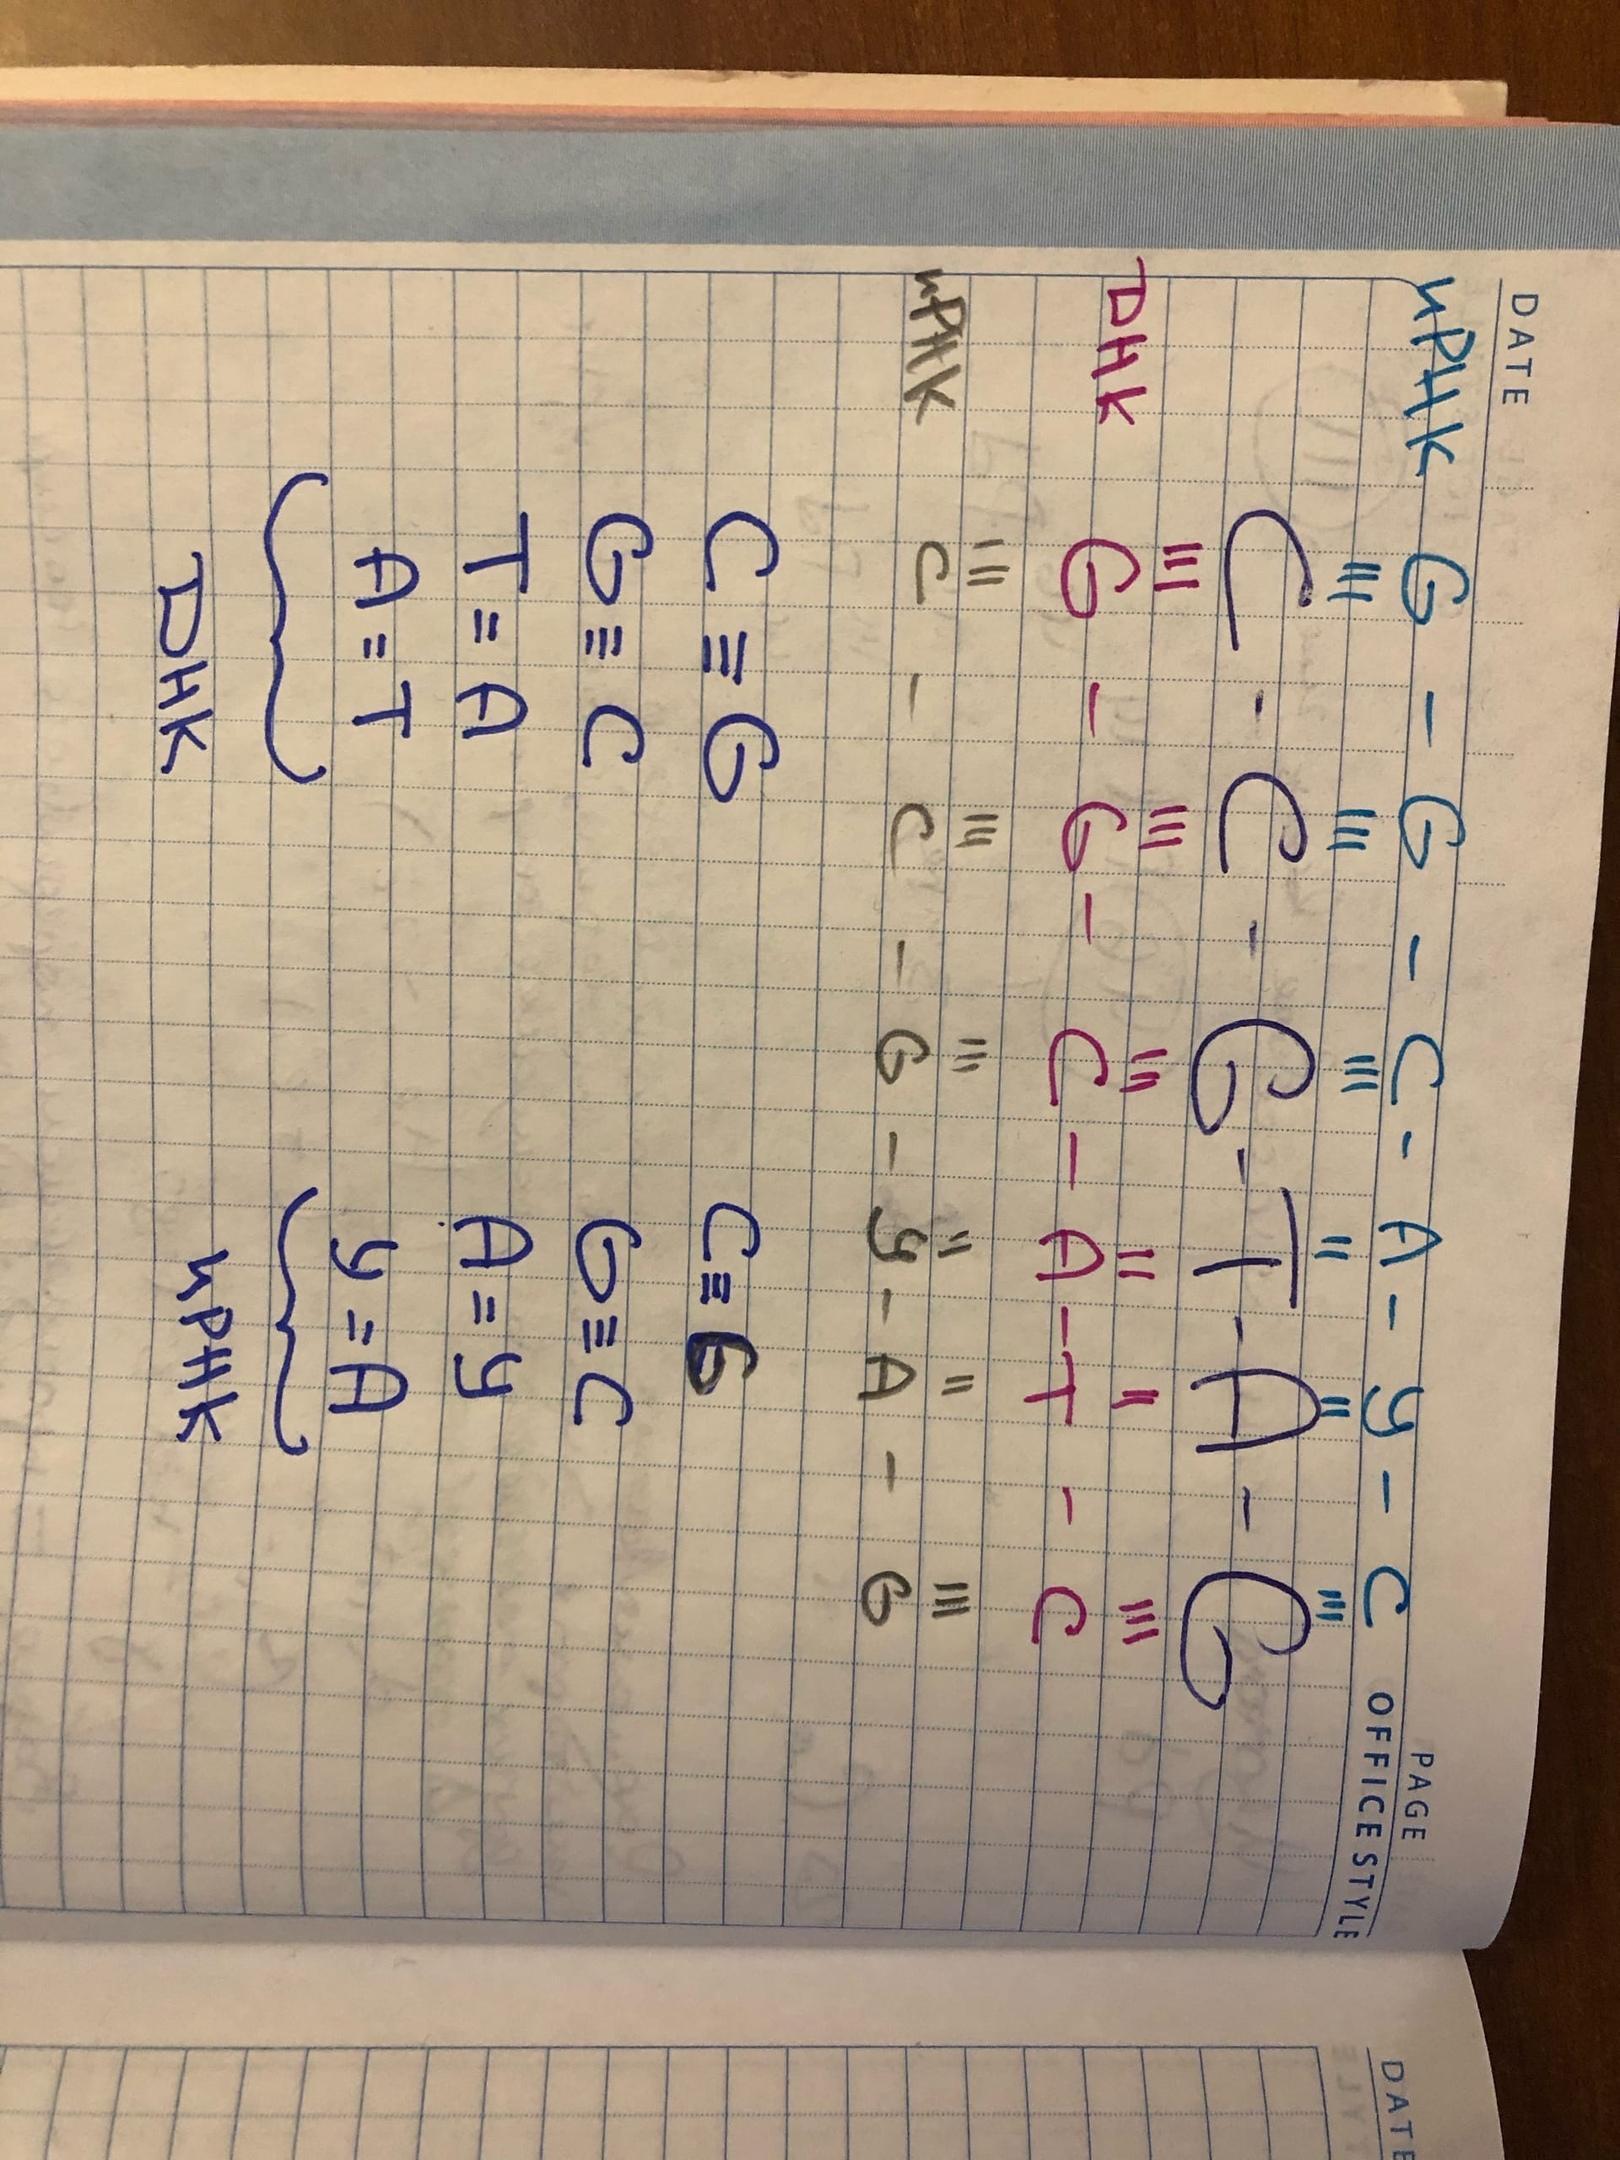 DATE
PAGE
OFFICE STYLE
иРНК G - G - C - A - У - C
≡ ≡ ≡ = = ≡
C - C - G - T - A - G
≡ ≡ ≡ = = ≡
DНК G - G - C - A - T - C
≡ ≡ ≡ = = ≡
иРНК C - C - G - У - A - G
C ≡ G C ≡ G
G ≡ C G ≡ C
T = A A = У
A = T У = A
DНК иРНК
DATE